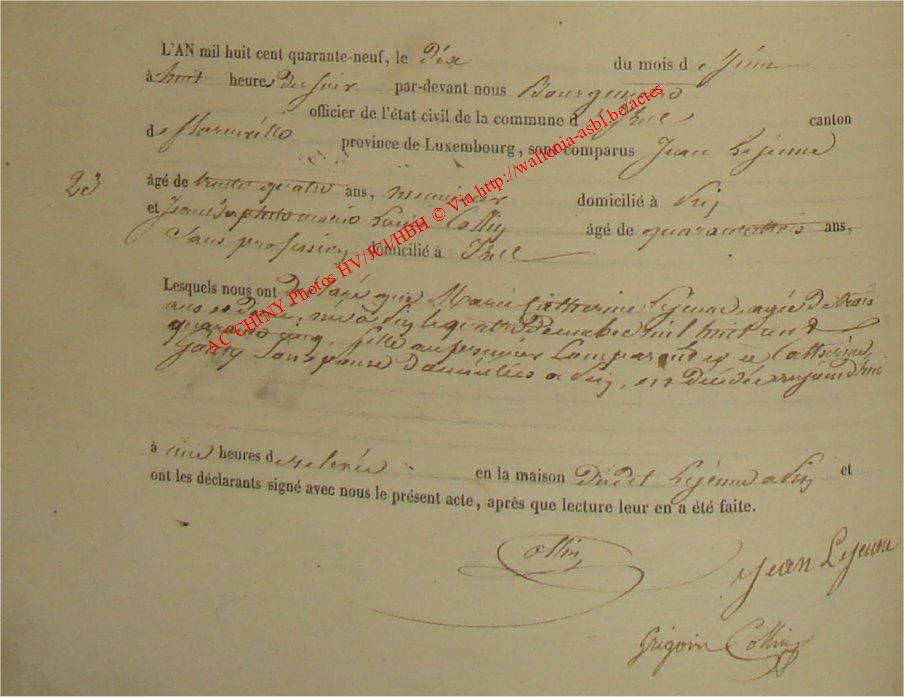 L'AN mil huit cent quarante-neuf, le dix du mois de Juin
à huit heures du soir par-devant nous Bourguignon
officier de l'état civil de la commune d canton
de florenville province de Luxembourg, sont comparus Jean Lejeune
23
âgé de trente quatre ans, domicilié à
et Jean Collin âgé de quarante trois ans,
Sans profession, domicilié à
Lesquels nous ont déclaré que Marie Catherine Lejeune, agée de trois
ans et demi, née à le quatre décembre mil huit cent
quarante cinq, fille du premier comparant et de Catherine
son épouse domiciliés à est décédée aujourd'hui
à une heures de relevée en la maison Dudit Lejeune à et
ont les déclarants signé avec nous le présent acte, après que lecture leur en a été faite.
Collin
Jean Lejeune
Grégoire Collin
AC CHINY Photos HV/JCl/HBH © Via http://wallonia-asbl.be/actes